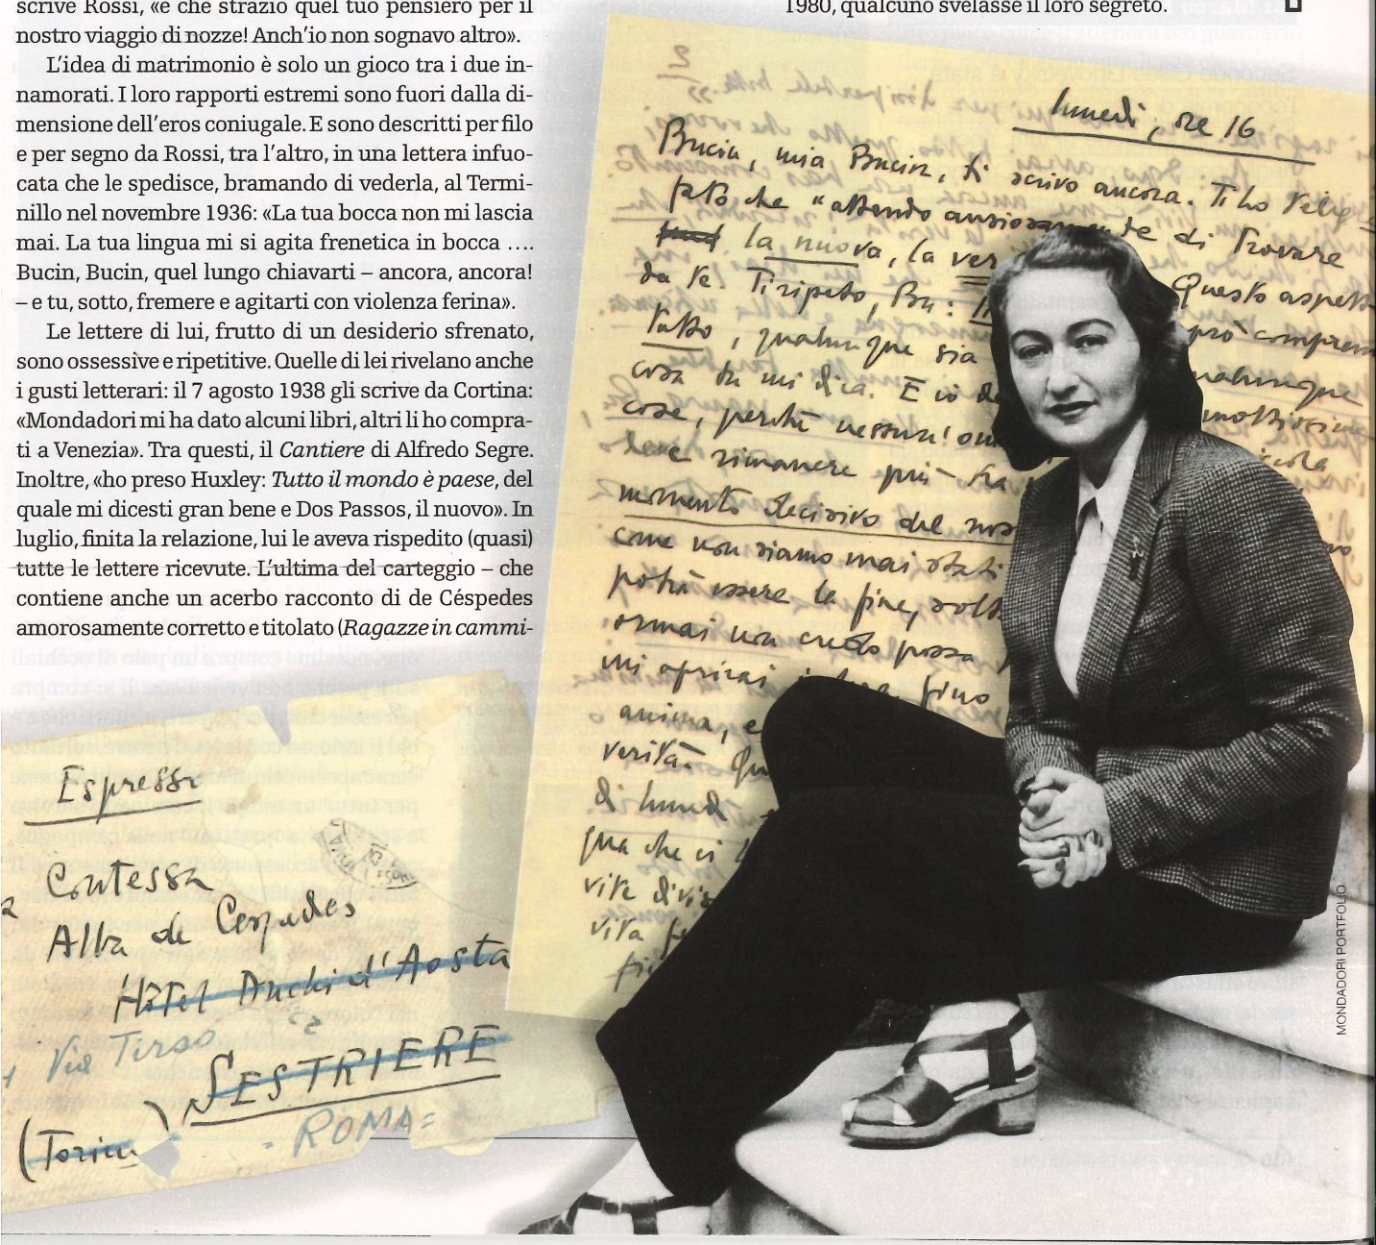 scrive Rossi, «e che strazio quel tuo pensiero per il
nostro viaggio di nozze! Anch'io non sognavo altro».
L'idea di matrimonio è solo un gioco tra i due in-
namorati. I loro rapporti estremi sono fuori dalla di-
mensione dell'eros coniugale. E sono descritti per filo
e per segno da Rossi, tra l'altro, in una lettera infuo-
cata che le spedisce, bramando di vederla, al Termi-
nillo nel novembre 1936: «La tua bocca non mi lascia
mai. La tua lingua mi si agita frenetica in bocca ....
Bucin, Bucin, quel lungo chiavarti – ancora, ancora!
– e tu, sotto, fremere e agitarti con violenza ferina».
Le lettere di lui, frutto di un desiderio sfrenato,
sono ossessive e ripetitive. Quelle di lei rivelano anche
i gusti letterari: il 7 agosto 1938 gli scrive da Cortina:
«Mondadori mi ha dato alcuni libri, altri li ho compra-
ti a Venezia». Tra questi, il Cantiere di Alfredo Segre.
Inoltre, «ho preso Huxley: Tutto il mondo è paese, del
quale mi dicesti gran bene e Dos Passos, il nuovo». In
luglio, finita la relazione, lui le aveva rispedito (quasi)
tutte le lettere ricevute. L'ultima del carteggio – che
contiene anche un acerbo racconto di de Céspedes
amorosamente corretto e titolato (Ragazze in cammi-
1980, qualcuno svelasse il loro segreto.
2
lunedì, ore 16
Bucin, mia Bucin, ti scrivo ancora. Ti ho
che "attendo ansiosamente di trovare
la nuova, la ver
da te. Ti ripeto, Bu: Questo aspett
tutto, qualunque sia però comprem
cosa tu mi dica. E io de qualunque
cose, perché nessun' om moltissime
deve rimanere più tra
momento decisivo del nos
come non siamo mai stati
potrà essere la fine, volt
ormai non credo possa
mi aprirai fino
anima, e
verità. Qu
di lunedì
qua che ci
vite divis
vita fe
Espresso
Contessa
Alba de Cespedes
Hôtel Duchi d'Aosta
Via Tirso
SESTRIERE
(Torino)
=ROMA=
MONDADORI PORTFOLIO